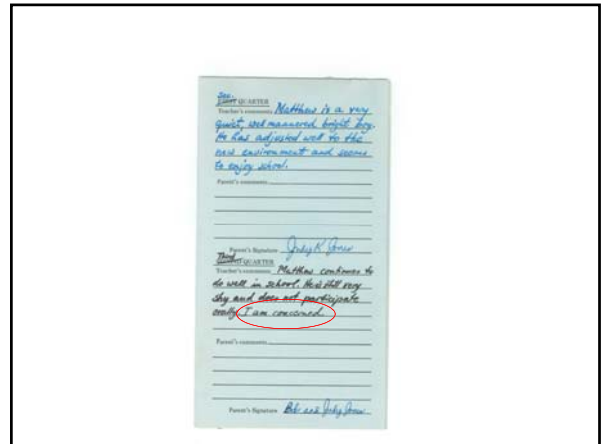 Sec.
FIRST QUARTER
Teacher's comments Matthew is a very
quiet, well mannered bright boy.
He has adjusted well to the
new environment and seems
to enjoy school.
Parent's comments
Parent's Signature Judy K Jones
Third
QUARTER
Teacher's comments Matthew continues to
do well in school. He is still very
shy and does not participate
orally. I am concerned.
Parent's comments
Parent's Signature Bob and Judy Jones